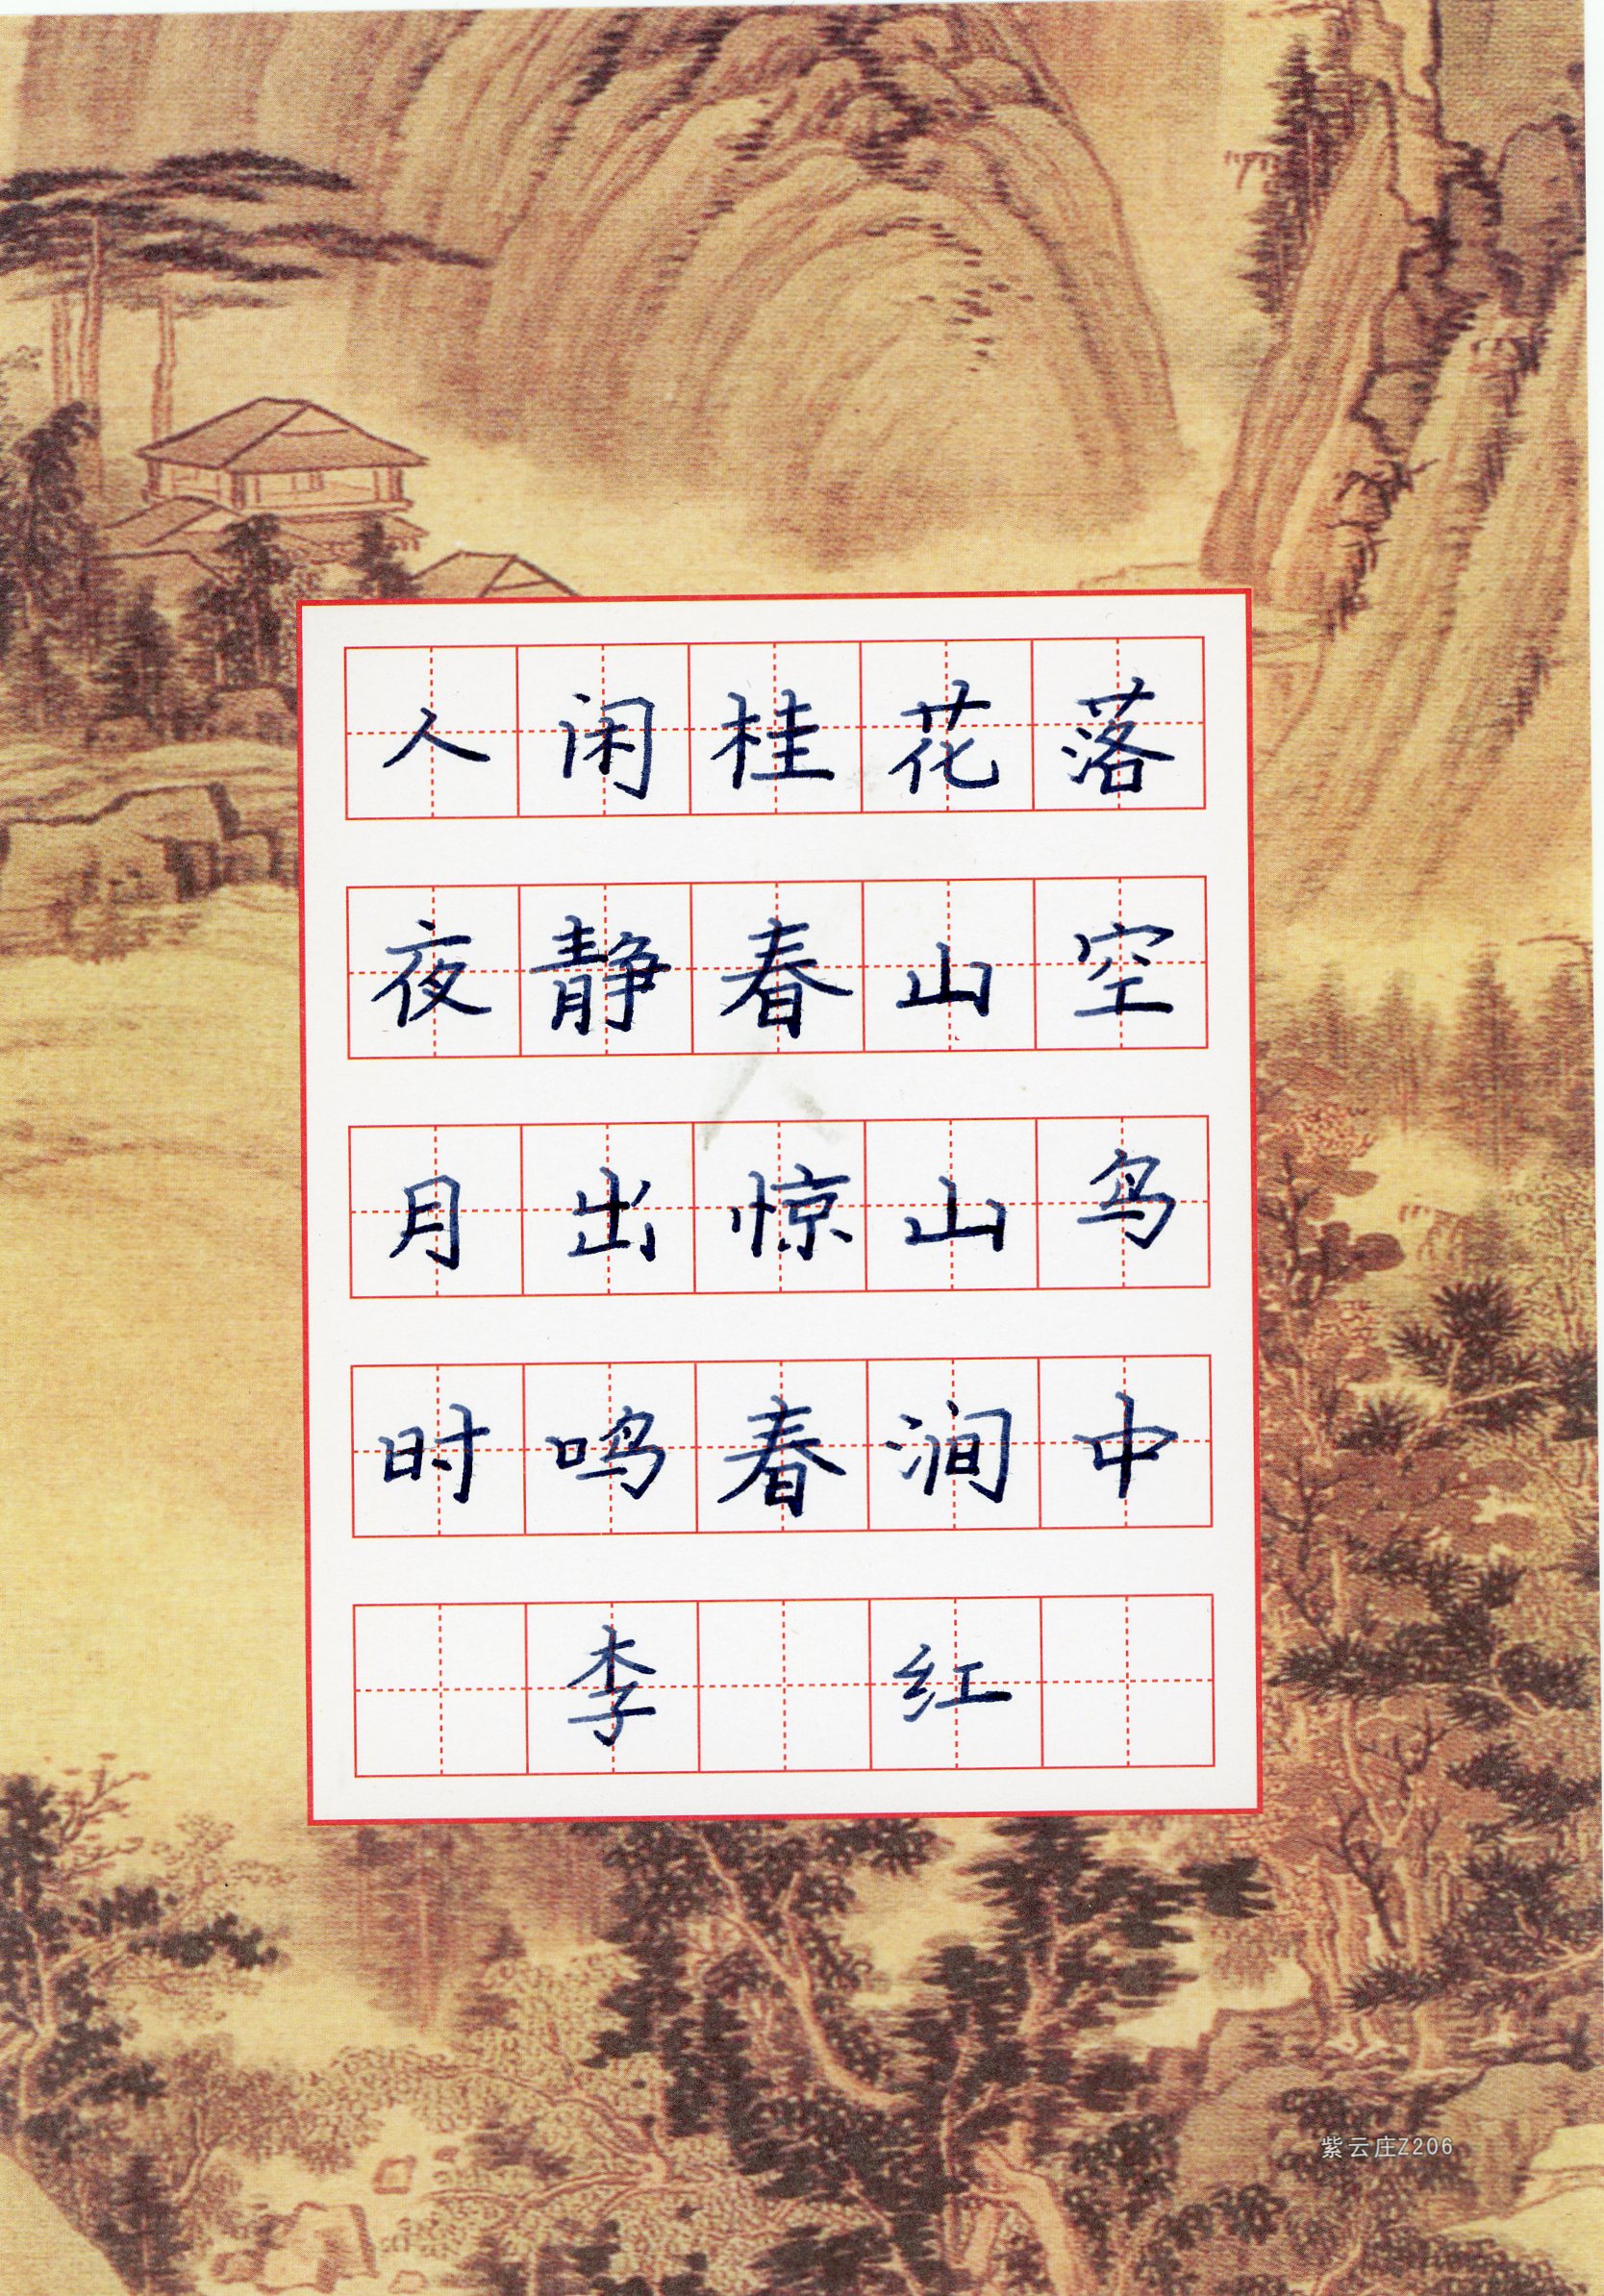 人闲桂花落
夜静春山空
月出惊山鸟
时鸣春涧中
李 红
紫云庄Z206